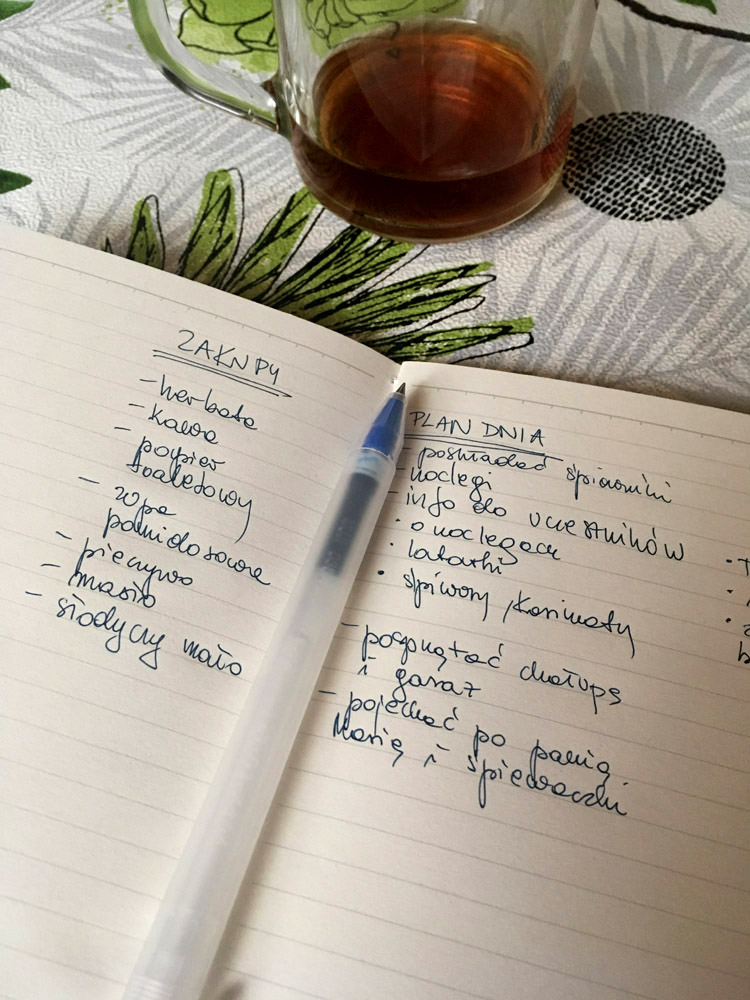 ZAKUPY
- herbata
- kawa
- papier
toaletowy
- zupa
pomidorowa
- pieczywo
- masło
- słodyczy mało
PLAN DNIA
- poskładać śpiewniki
- noclegi
- info do uczestników
• o noclegach
• latarki
• śpiwory, karimaty
- posprzątać chałupę
i garaż
- pojechać po panią
Marię i śpiewaczki